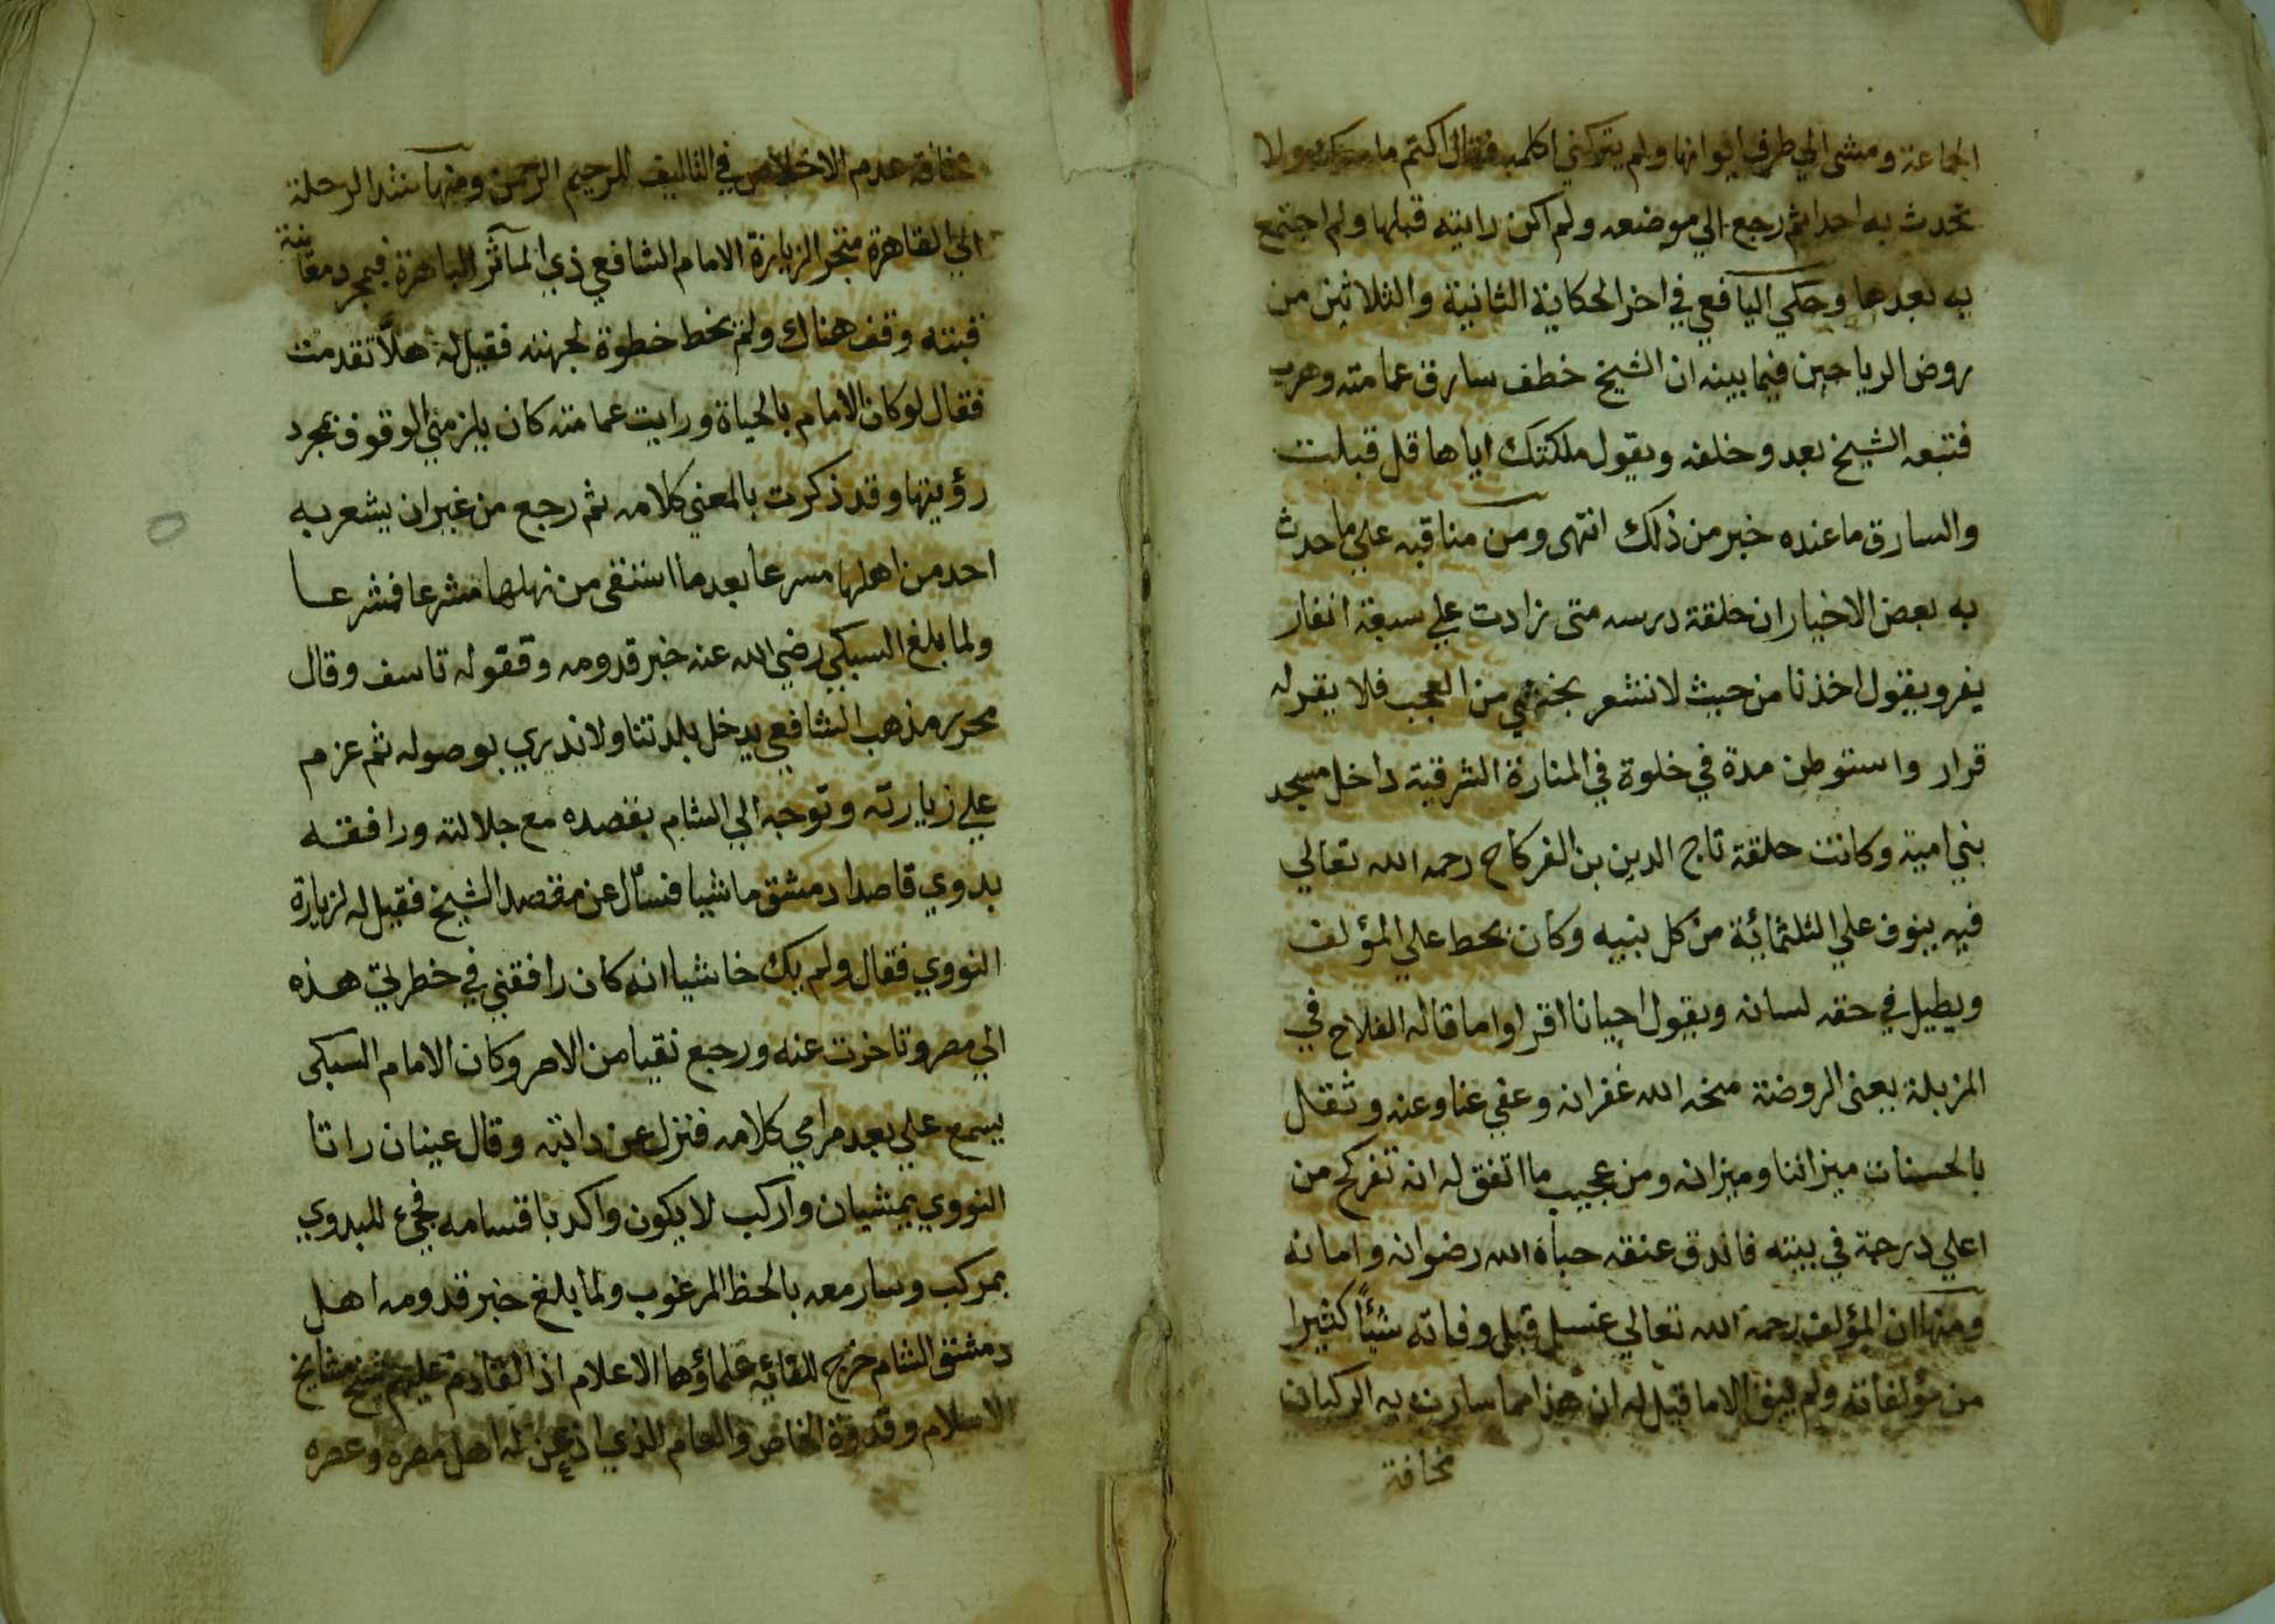 الجماعة ومشى الي طرف ايوانها ولم يتركني اكلمه وقال اكتم ما معك ولا
تحدث به احدا ثم رجع الي موضعه ولم اكن رايته قبلها ولم اجتمع
به بعدها وحكي اليافعي في اخر الحكاية الثانية والثلاثين من
روض الرياحين فيما بينه ان الشيخ خطف سارق عمامته وهرب
فتبعه الشيخ يعدو خلفه ويقول ملكتك اياها قل قبلت
والسارق ما عنده خبر من ذلك انتهى ومن مناقبه علي ما حدث
به بعض الاخيار ان حلقة درسه متى زادت علي سبعة انفار
يفر ويقول اخذنا من حيث لا نشعر من العجب فلا يقر له
قرار واستوطن مدة في خلوة في المنارة الشرقية داخل مسجد
بني امية وكانت حلقة تاج الدين بن الفركاح رحمه الله تعالي
فيه ينوف علي الثلثمائة من كل بنيه وكان يحط علي المؤلف
ويطيل في حقه لسانه ويقول احيانا اقراوا ما قاله الفلاح في
المزبلة يعني الروضة منحه الله غفرانه وعفي عنا وعنه وثقل
بالحسنات ميزاننا وميزانه ومن عجيب ما اتفق له انه تفركح من
اعلي درجة في بيته فاندق عنقه حباه الله رضوانه وامانه
ومنها ان المؤلف رحمه الله تعالي غسل قبل وفاته شيئًا كثيرا
من مؤلفاته ولم يبق الا ما قيل له ان هذا مما سارت به الركبان
مخافة
مخافة عدم الاخلاص في التاليف للرحيم الرحمن ومنها شد الرحلة
الي القاهرة متحر الزيارة الامام الشافعي ذي المآثر الباهرة فبمجرد معاينة
قبته وقف هناك ولم يخط خطوة لجهته فقيل له هلّا تقدمت
فقال لو كان الامام بالحياة ورايت عمامته كان يلزمني الوقوف بمجرد
رؤيتها وقد ذكرت بالمعني كلامه ثم رجع من غير ان يشعر به
احد من اهلها مسرعا بعدما استقى من نهلها مشرعا فمشرعا
ولما بلغ السبكي رضي الله عنه خبر قدومه وقفوله تاسف وقال
محرر مذهب الشافعي يدخل بلدتنا ولا ندري بوصوله ثم عزم
علي زيارته وتوجه الي الشام بقصده مع جلالته ورافقه
بدوي قاصدا دمشق ماشيا فسأل عن مقصد الشيخ فقيل له لزيارة
النووي فقال ولم يك خاشيا انه كان رافقني في خطرتي هذه
الي مصر وتاخرت عنه ورجع نقيا من الاصر وكان الامام السبكى
يسمع علي بعد مرامي كلامه فنزل عن دابته وقال عينان راتا
النووي يمشيان واركب لا يكون واكد باقسامه فجيء للبدوي
بمركب وسار معه بالحظ المرغوب ولما بلغ خبر قدومه اهل
دمشق الشام خرج للقائه علماؤها الاعلام اذ القادم عليهم شيخ مشايخ
الاسلام وقدوة الخاص والعام الذي اذعن له اهل مصره وعصره